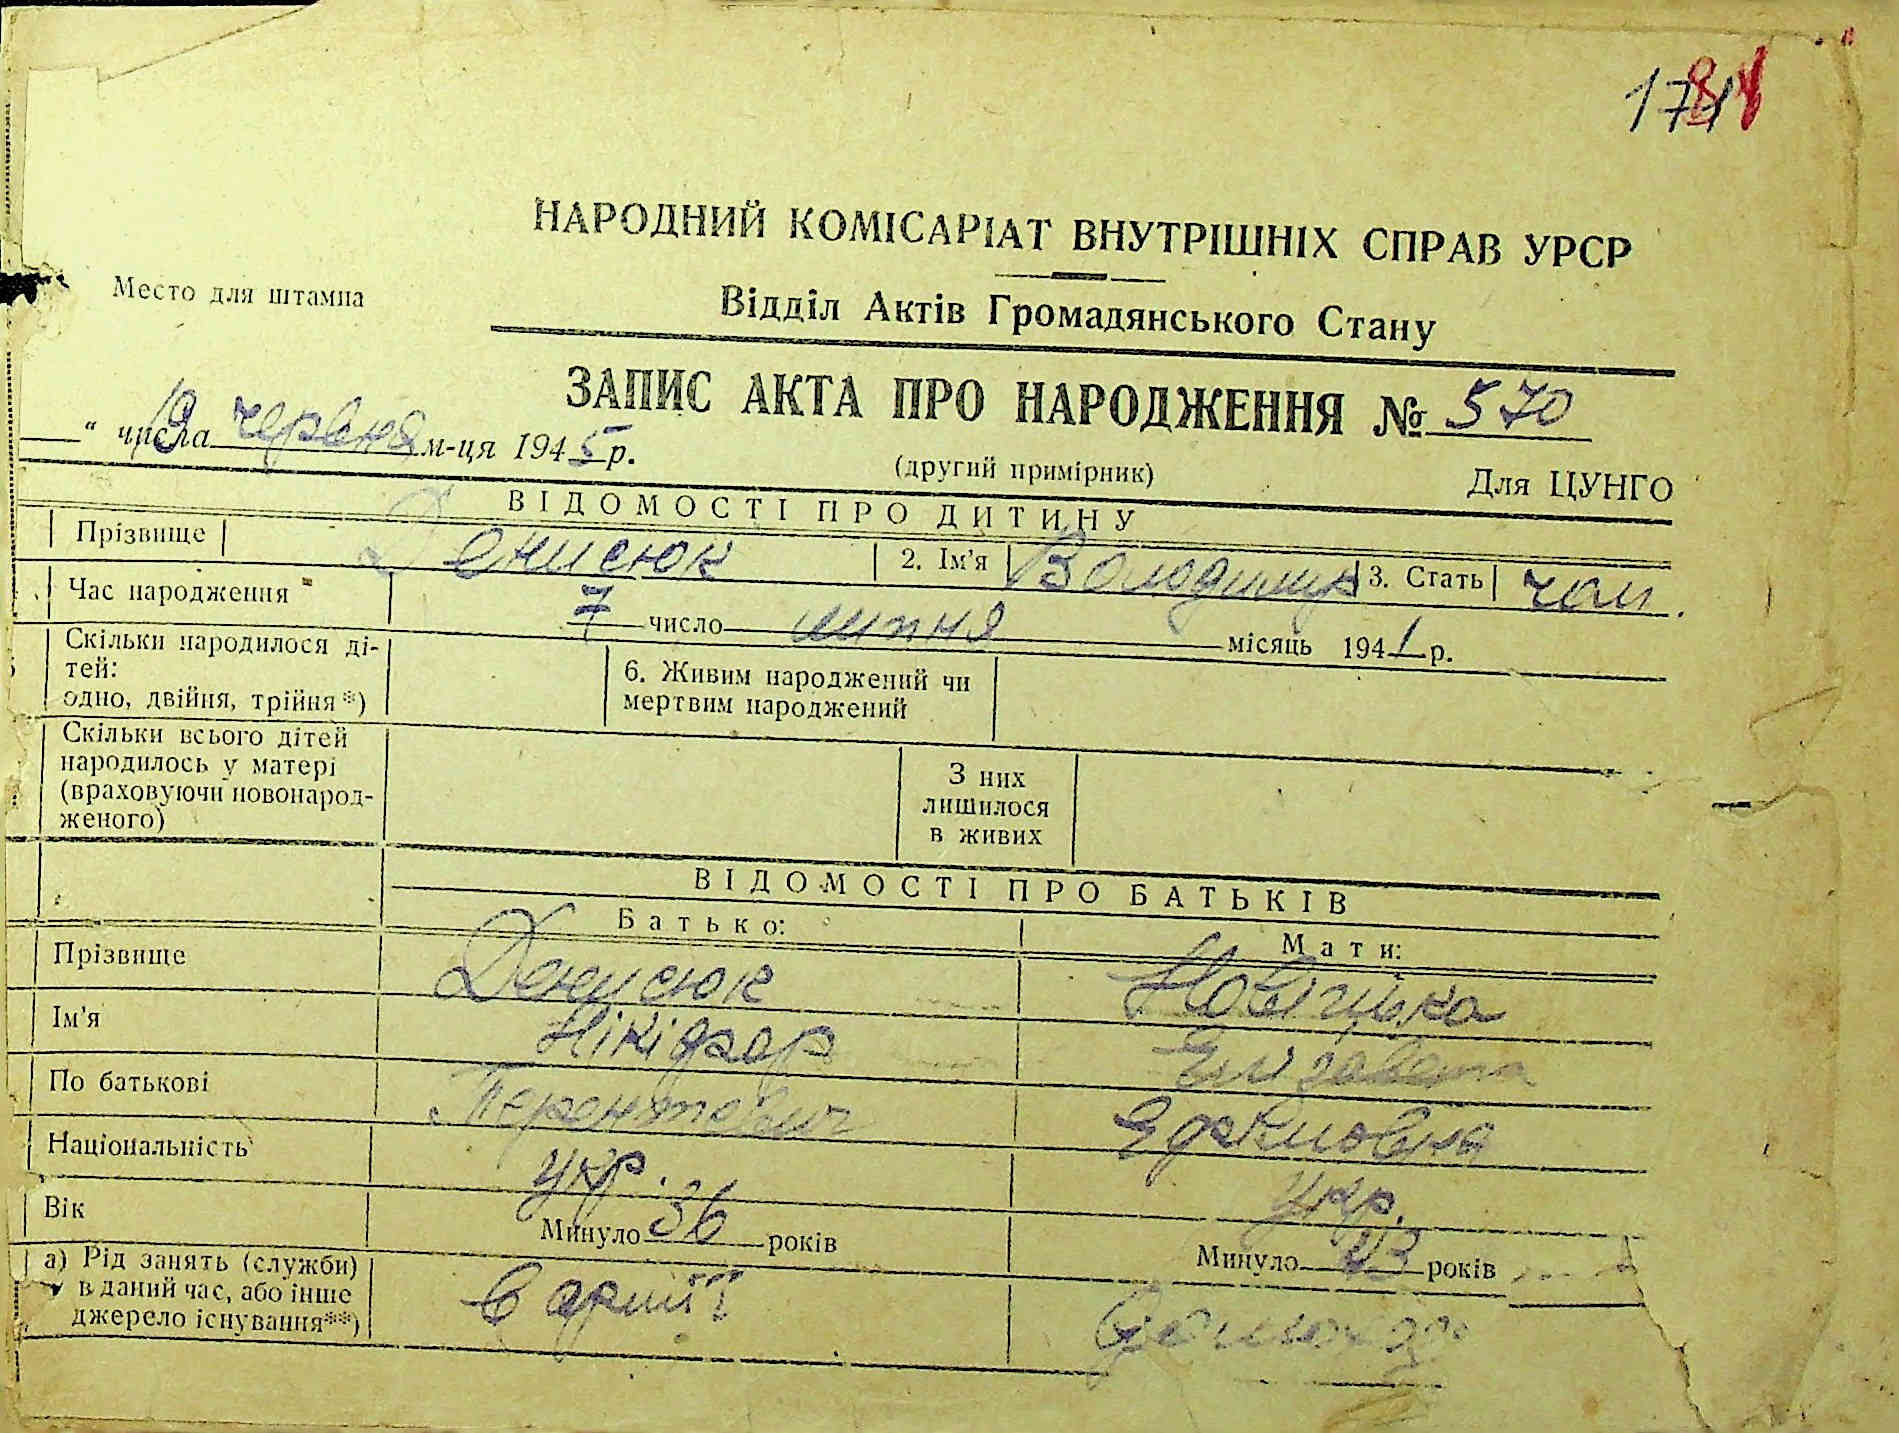 НАРОДНИЙ КОМІСАРІАТ ВНУТРІШНІХ СПРАВ УРСР
Место для штампа
Відділ Актів Громадянського Стану
ЗАПИС АКТА ПРО НАРОДЖЕННЯ № 570
" числа 19 червня м-ця 1945 р.
(другий примірник)
Для ЦУНГО
ВІДОМОСТІ ПРО ДИТИНУ
Прізвище Денисюк 2. Ім'я Володимир 3. Стать чол.
Час народження 7 число липня місяць 1941 р.
Скільки народилося ді-
тей:
одно, двійня, трійня*)
6. Живим народжений чи
мертвим народжений
Скільки всього дітей
народилось у матері
(враховуючи новонарод-
женого)
З них
лишилося
в живих
ВІДОМОСТІ ПРО БАТЬКІВ
Батько: Мати:
Прізвище Денисюк Новіцька
Ім'я Нікіфор Єлізавета
По батькові
Національність укр. укр.
Вік Минуло 36 років Минуло років
а) Рід занять (служби)
в даний час, або інше
джерело існування**)
В армії